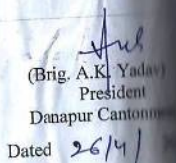 (Brig. A.K. Yadav)
President
Danapur
Dated 26/4/